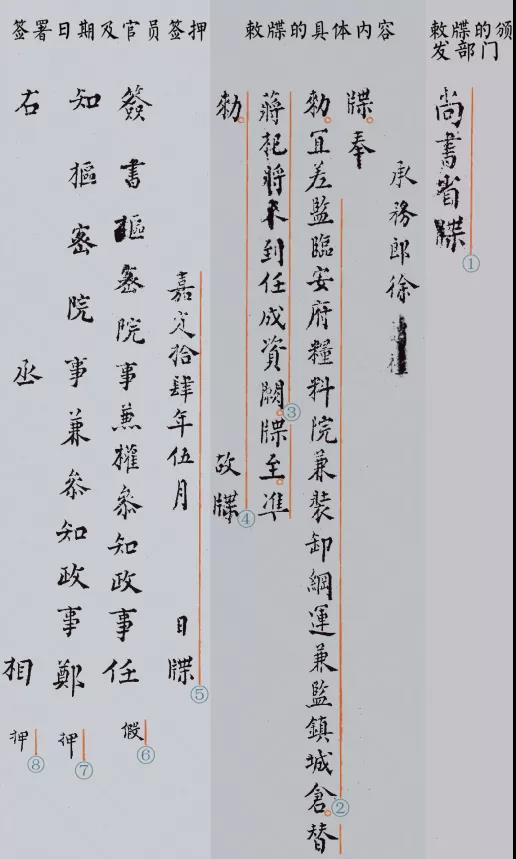 敕牒的颁
发部门
尚書省牒①
承務郎徐
敕牒的具体内容
牒。奉
勑。宜差監臨安府糧料院兼裝卸綱運兼監鎮城倉。②替
蔣杞將來到任成資闕。③牒至。準
勑。故牒④
签署日期及官员签押
嘉定拾肆年伍月 日牒⑤
簽書樞密院事兼權參知政事任 假⑥
知樞密院事兼參知政事鄭 押⑦
右丞相 押⑧